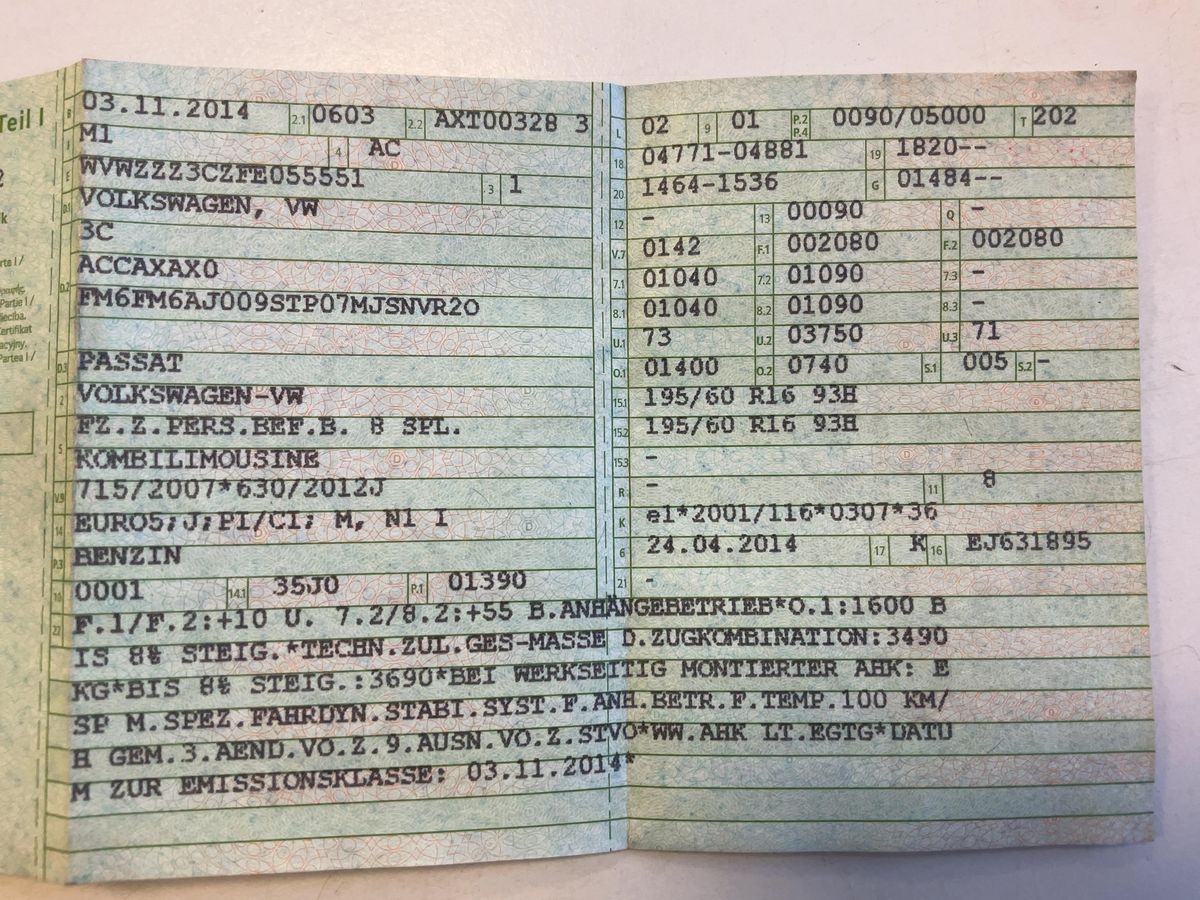 Teil I
B 03.11.2014 2.1 0603 2.2 AXT00328 3
J M1 4 AC
E WVWZZZ3CZFE055551 3 1
D.1 VOLKSWAGEN, VW
3C
D.2 ACCAXAX0
FM6FM6AJ009STP07MJSNVR2O
D.3 PASSAT
2 VOLKSWAGEN-VW
5 FZ.Z.PERS.BEF.B. 8 SPL.
KOMBILIMOUSINE
V.9 715/2007*630/2012J
14 EURO5;J;PI/CI; M, N1 I
P.3 BENZIN
10 0001 14.1 35J0 P.1 01390
L 02 9 01 P.2 P.4 0090/05000 T 202
18 04771-04881 19 1820--
20 1464-1536 G 01484--
12 - 13 00090 Q -
V.7 0142 F.1 002080 F.2 002080
7.1 01040 7.2 01090 7.3 -
8.1 01040 8.2 01090 8.3 -
U.1 73 U.2 03750 U.3 71
O.1 01400 O.2 0740 S.1 005 S.2 -
15.1 195/60 R16 93H
15.2 195/60 R16 93H
15.3 -
R - 11 8
K e1*2001/116*0307*36
6 24.04.2014 17 K 16 EJ631895
21 -
22 F.1/F.2:+10 U. 7.2/8.2:+55 B.ANHÄNGEBETRIEB*O.1:1600 B
IS 8% STEIG.*TECHN.ZUL.GES-MASSE D.ZUGKOMBINATION:3490
KG*BIS 8% STEIG.:3690*BEI WERKSEITIG MONTIERTER AHK: E
SP M.SPEZ.FAHRDYN.STABI.SYST.F.ANH.BETR.F.TEMP.100 KM/
H GEM.3.AEND.VO.Z.9.AUSN.VO.Z.STVO*WW.AHK LT.EGTG*DATU
M ZUR EMISSIONSKLASSE: 03.11.2014*